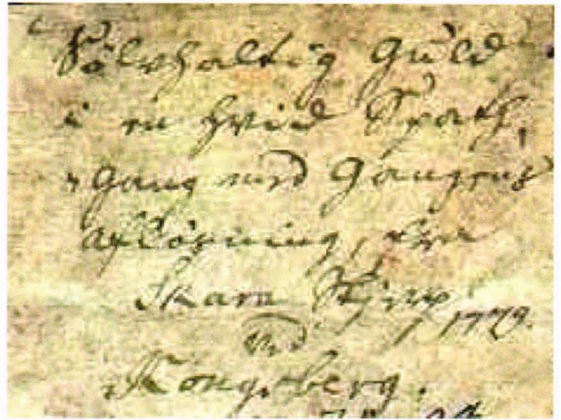 Sölvhaltig Guld
i en hvid Spath,
gang med Gangens
aflösning, fra
Skara
1779.
ved
Kongsberg.